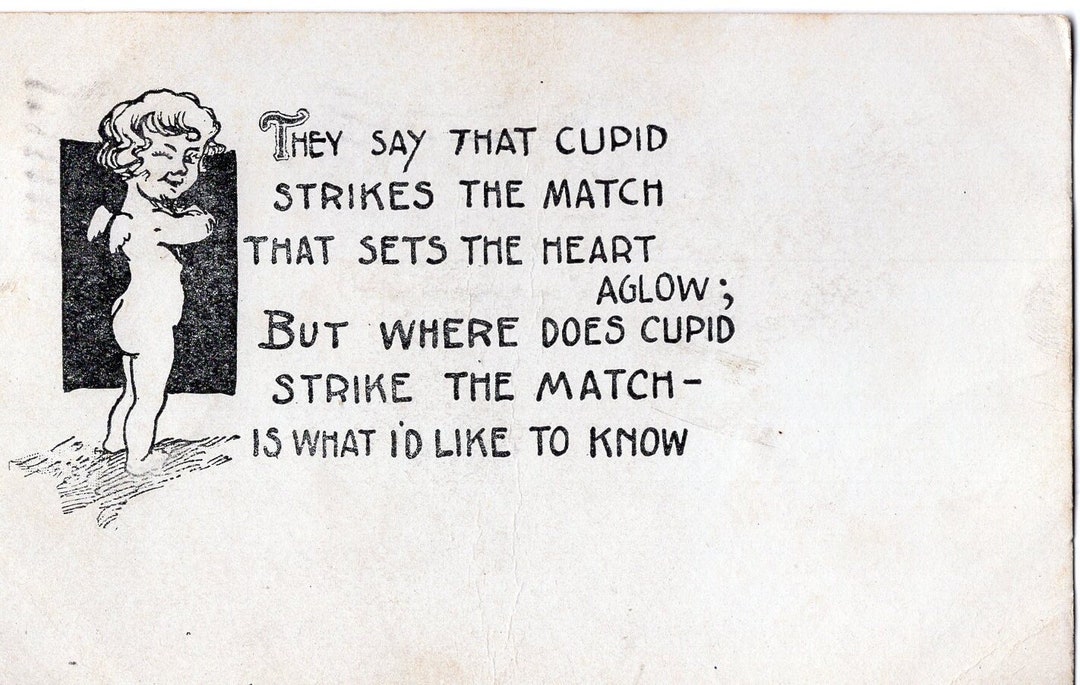 THEY SAY THAT CUPID
STRIKES THE MATCH
THAT SETS THE HEART
AGLOW;
BUT WHERE DOES CUPID
STRIKE THE MATCH-
IS WHAT I'D LIKE TO KNOW